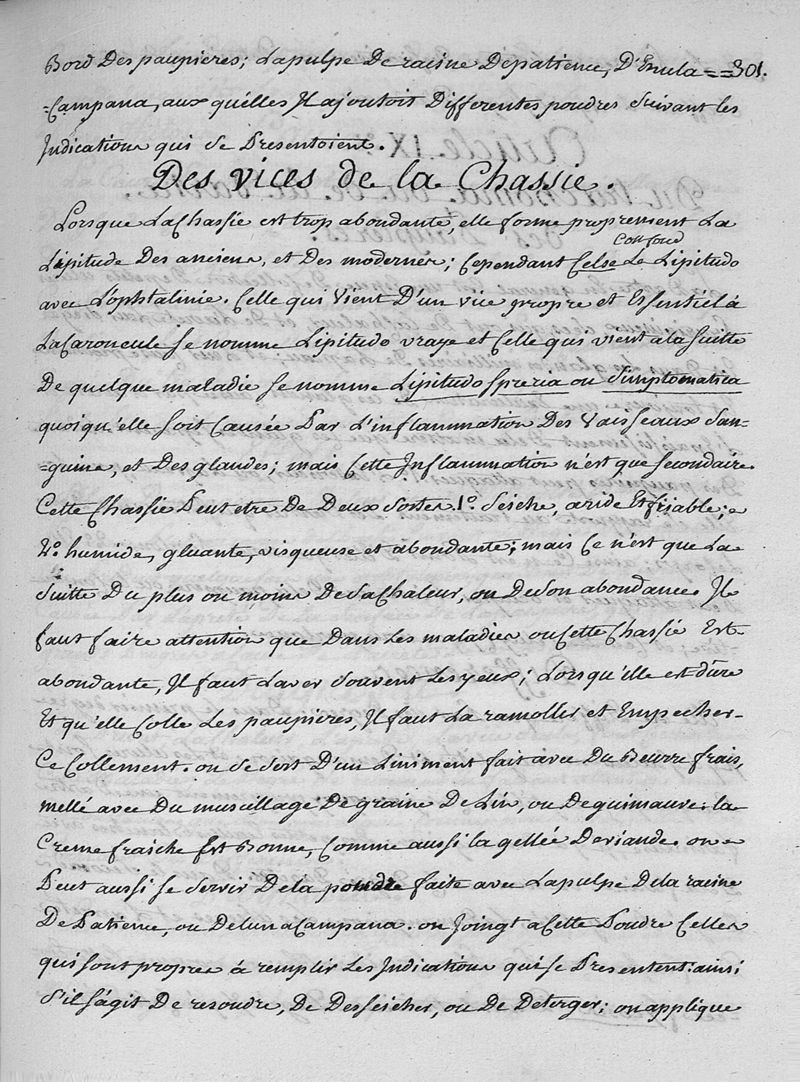 Bord Des paupieres; Lapulpe De racine Depatience, D'Enula== 301.
=Campana, aux qu'elles Il ajoutoit Differentes poudres suivant les
Indications qui se Presentoient.
Des vices de la Chassie.
Lorsque La Chassie est trop abondante, elle forme proprement La
Lipitude Des anciens, et Des modernes; Cependant Celse Confond Le Lipitudo
avec L'ophtalmie. Celle qui vient D'un vice propre et Essentiel à
La Caroncule se nomme Lipitudo vraye et Celle qui vient ala suitte
De quelque maladie se nomme Lipitudo spreria ou Simptomatica
quoiqu'elle soit Causée Par L'inflammation Des Vaisseaux San-
=guins, et Des glandes; mais Cette Inflammation n'est que secondaire.
Cette Chassie Peut etre De Deux sortes 1.° seiche, aride Et friable;
2.° humide, gluante, visqueuse et abondante; mais Ce n'est que La
suitte Du plus ou moins De sa Chaleur, ou De son abondance. Il
faut faire attention que Dans Les maladies ou Cette Chassie Est
abondante, Il faut Laver souvent Les yeux; Lorsqu'elle est dure
Et qu'elle Colle Les paupieres, Il faut La ramollir et Empecher-
Ce Collement. on se sert D'un Liniment fait avec Du Beurre frais,
mellé avec Du muscillage De graine De Lin, ou De guimauve. la
Creme fraiche Est Bonne, Comme aussi la gellée De viande. on
Peut aussi se servir De la poudre faite avec La pulpe De la racine
De Patience, ou Delunacampana. on Joingt a Cette Poudre Celles
qui sont propres à remplir Les Indications qui se Presentent: ainsi
s'il s'agit De resoudre, De Desseicher, ou De Deterger; on applique